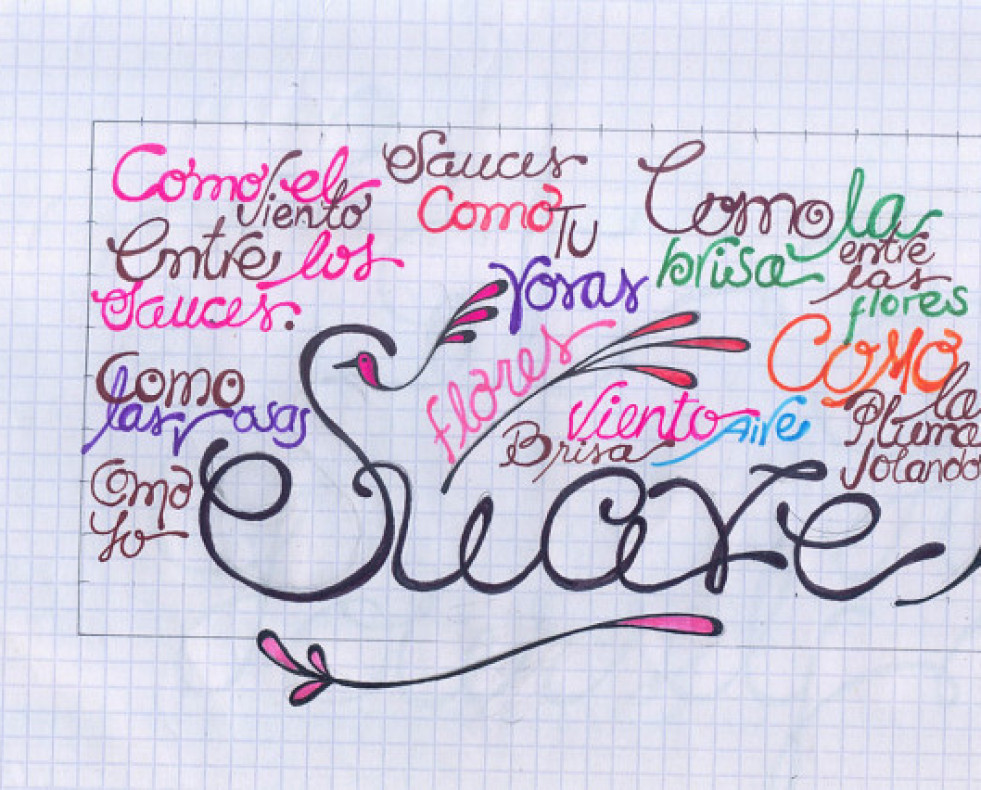 Como el
Viento
Entre los
Sauces.
Sauces
Como
Tu
Como la
brisa
entre
las
flores
rosas
flores
Como
las rosas
Como
Yo
Viento
Brisa
Aire
Como
la
Pluma
Volando
Suave